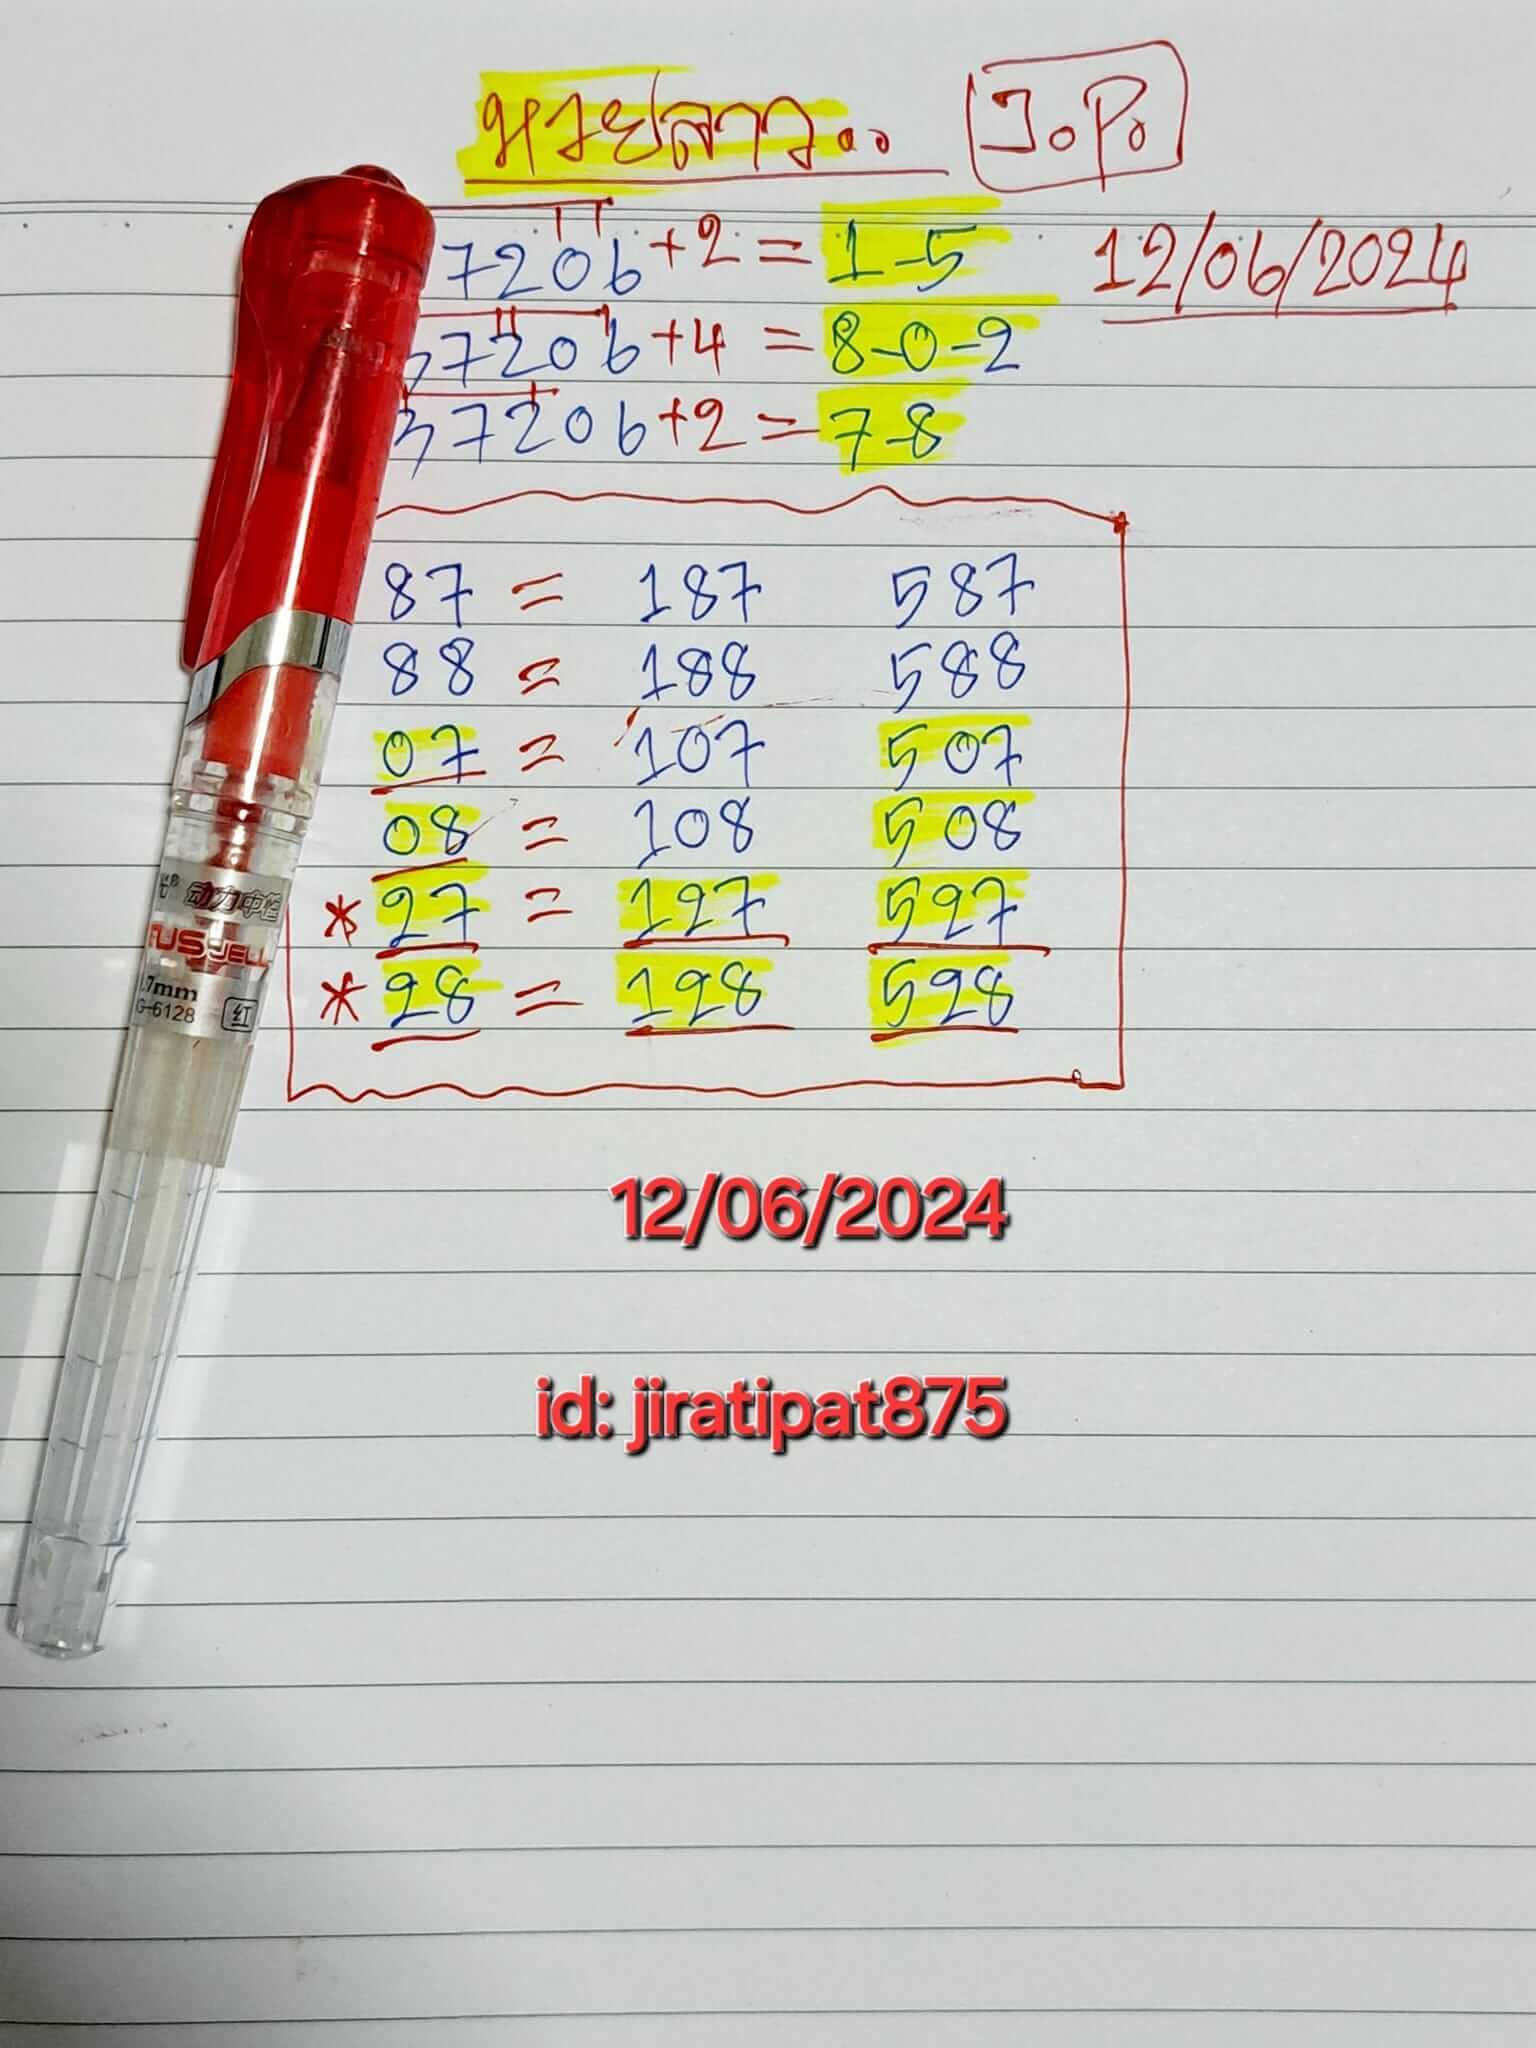 หวยลาว.. J.P.
7206+2=1-5 12/06/2024
37206+4=8-0-2
37206+2=7-8
87 = 187 587
88 = 188 588
07 = 107 507
08 = 108 508
* 27 = 127 527
* 28 = 128 528
动力中性
FUSYELL
.7mm
G-6128 红
12/06/2024
id: jiratipat875